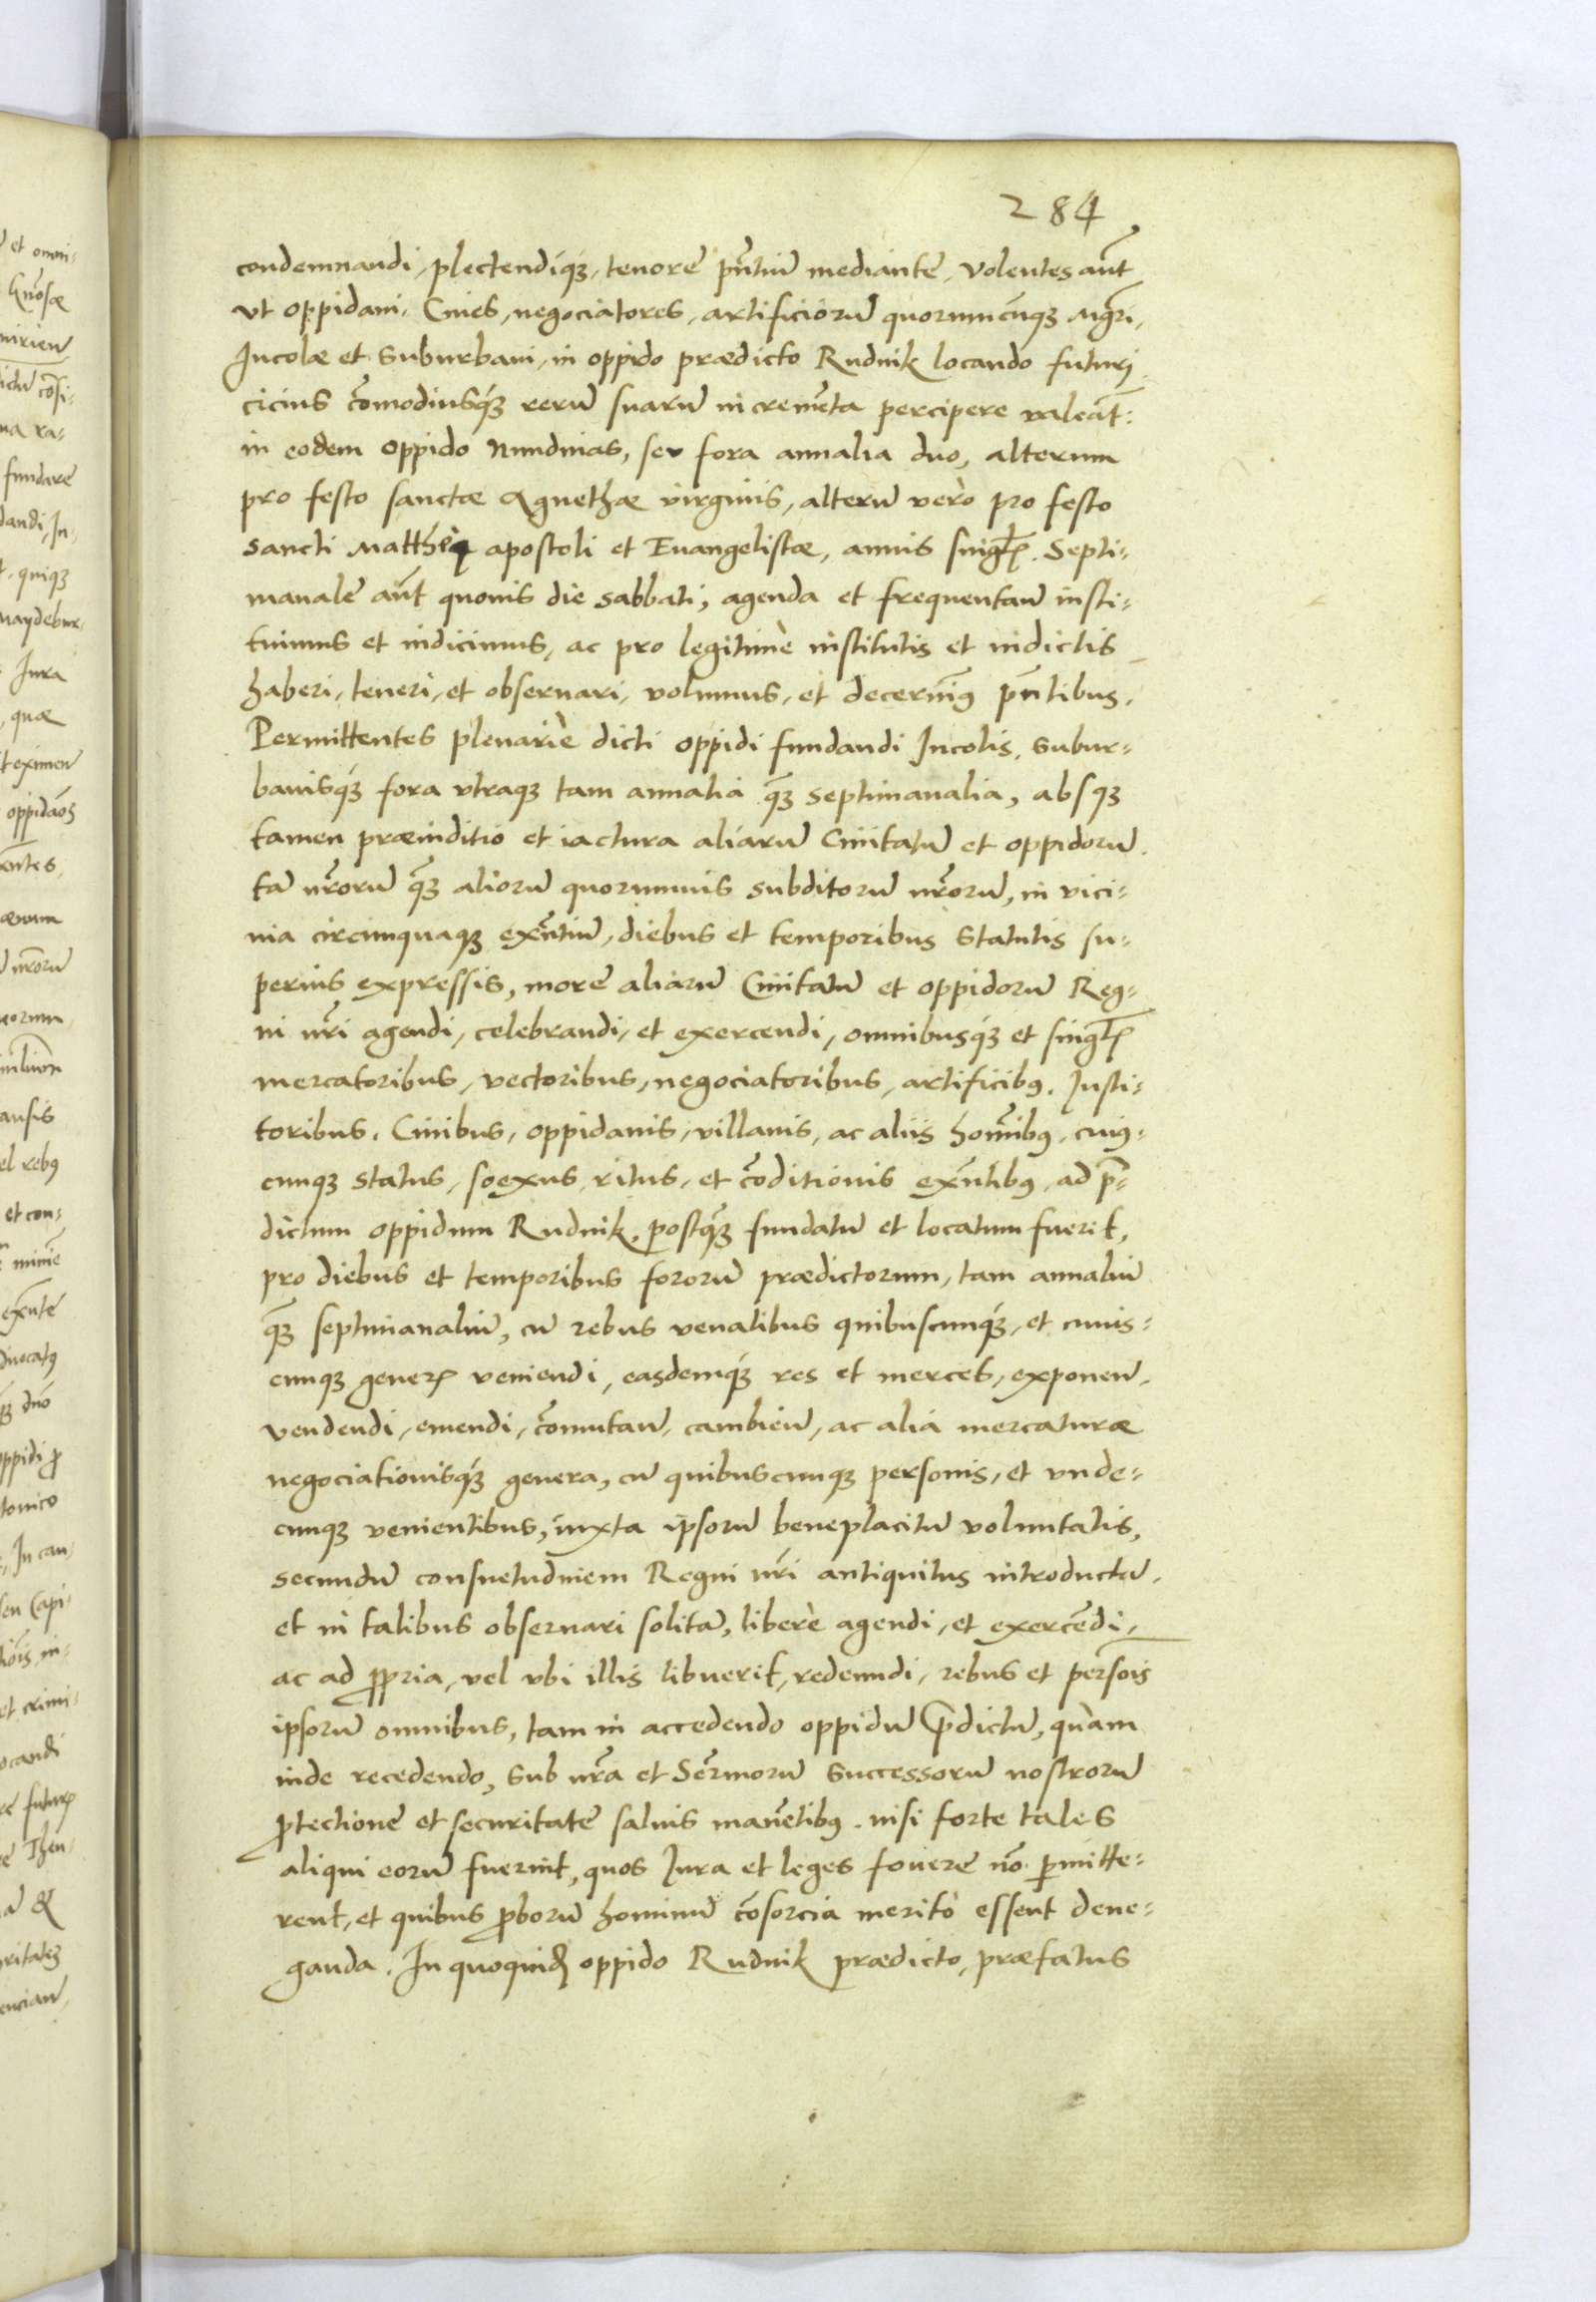 284
condemnandi, plectendiq́ꝫ, tenore pñtiũ mediante, Volentes aũt
vt oppidani, Ciues, negociatores, artificiorũ quorumcũqꝫ mgr̃i,
Incolæ et Suburbani, in oppido prædicto Rudnik locando futuri,
cicius cõmodiusq́ꝫ rerũ suarũ incremẽta percipere valeãt:
in eodem oppido Nundinas, seu fora annalia duo, alterum
pro festo sanctæ Agnethæ virginis, alterũ verò pro festo
sancti Matthęi apostoli et Euangelistæ, annis singľꝭ. Septi-
manale aũt quouis die sabbati, agenda et frequentañ insti-
tuimus et indicimus, ac pro legitimè institutis et indictis
haberi, teneri, et obseruari, volumus, et decernim̃9 pñtibus.
Permittentes plenariè dicti oppidi fundandi Incolis, Subur-
banisq́ꝫ fora vtraqꝫ tam annalia q̃ꝫ septimanalia, absqꝫ
tamen præiuditio et iactura aliarũ Ciuitatũ et oppidorũ,
tã nr̃orũ q̃ꝫ aliorũ quorumuis subditorũ nr̃orũ, in vici-
nia circũquaqꝫ exñtiũ, diebus et temporibus statutis su-
perius expressis, more aliarũ Ciuitatũ et oppidorũ Reg-
ni nr̃i agendi, celebrandi, et exercendi, omnibusq́ꝫ et singľꝭ
mercatoribus, vectoribus, negociatoribus, artificib9, Insti-
toribus, Ciuibus, oppidanis, villanis, ac aliis homĩnib9, cui9-
cunqꝫ status, soexus, ritus, et cõditionis exñtib9, ad p̃-
dictum oppidum Rudnik, postq̃ꝫ fundatũ et locatum fuerit,
pro diebus et temporibus fororũ prædictorum, tam annaliũ
q̃ꝫ septimanaliũ, cũ rebus venalibus quibuscunq́ꝫ, et cuius-
cunqꝫ generꝭ veniendi, easdemq́ꝫ res et merces, exponeñ,
vendendi, emendi, cõmutañ, cambieñ, ac alia mercaturæ
negociationisq́ꝫ genera, cũ quibuscunqꝫ personis, et vnde-
cunqꝫ venientibus, iuxta ipsorũ beneplacitũ voluntatis,
secundũ consuetudinem Regni nr̃i antiquitus introductã,
et in talibus obseruari solitã, liberè agendi, et exercẽdi,
ac ad ꝓpria, vel vbi illis libuerit, redeundi, rebus et persõis
ipsorũ omnibus, tam in accedendo oppidũ p̃dictũ, quàm
inde recedendo, sub nr̃a et Serm̃orũ successorũ nostrorũ
ꝓtectione et securitate saluis manẽtib9. nisi forte tales
aliqui eorũ fuerint, quos Iura et leges fouere nõ ꝑmitte-
rent, et quibus ꝓborũ hominũ cõsorcia meritò essent dene-
ganda. In quoquidꝫ oppido Rudnik prædicto, præfatus